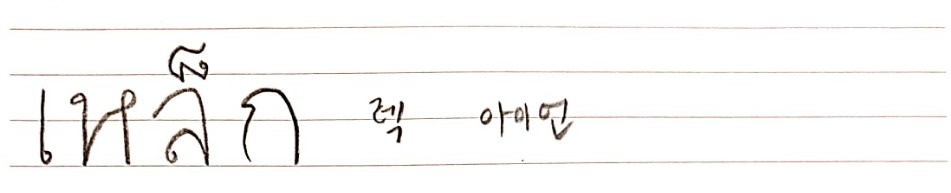 เหล็ก 렉 아이언